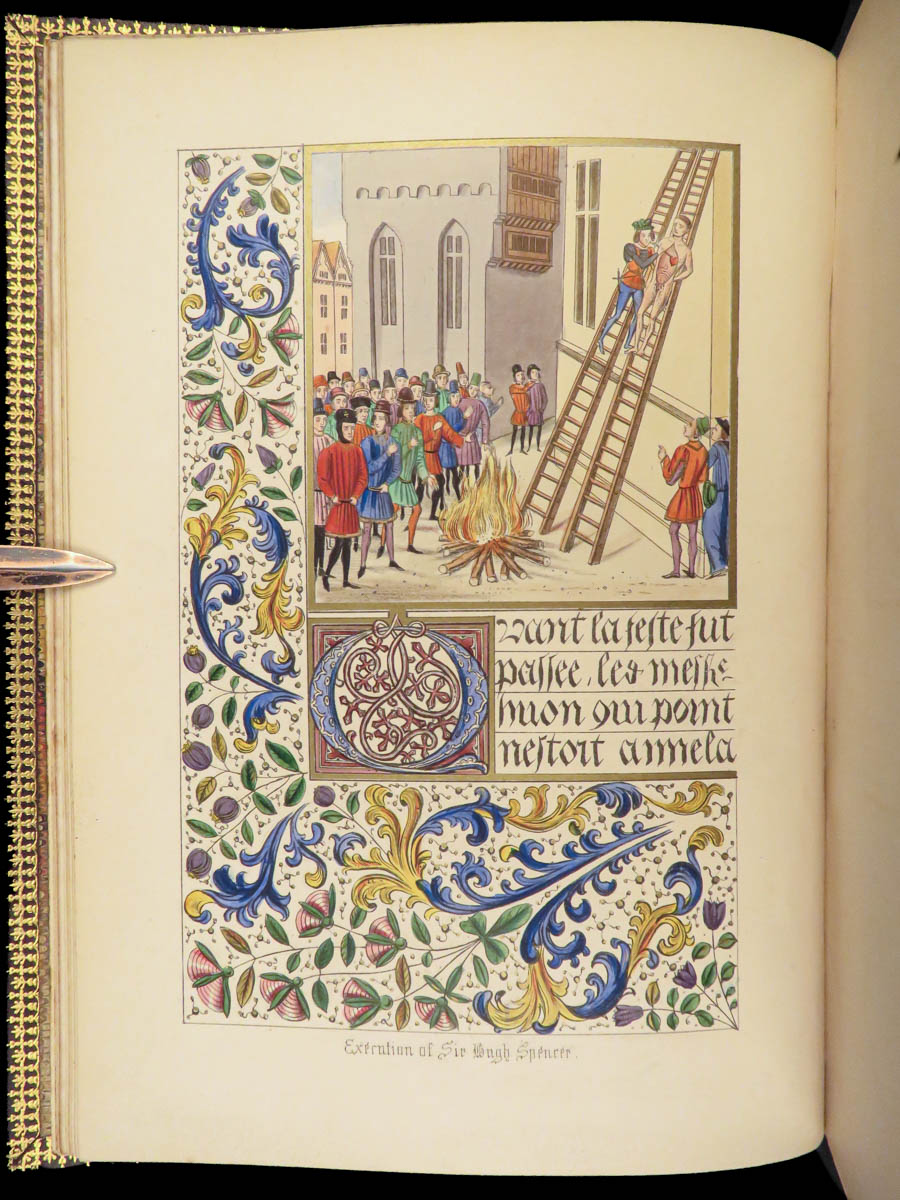 Quant la feste fut
passee, les mess̃
huon qui point
nestoit a mela
Execution of Sir Hugh Spencer.